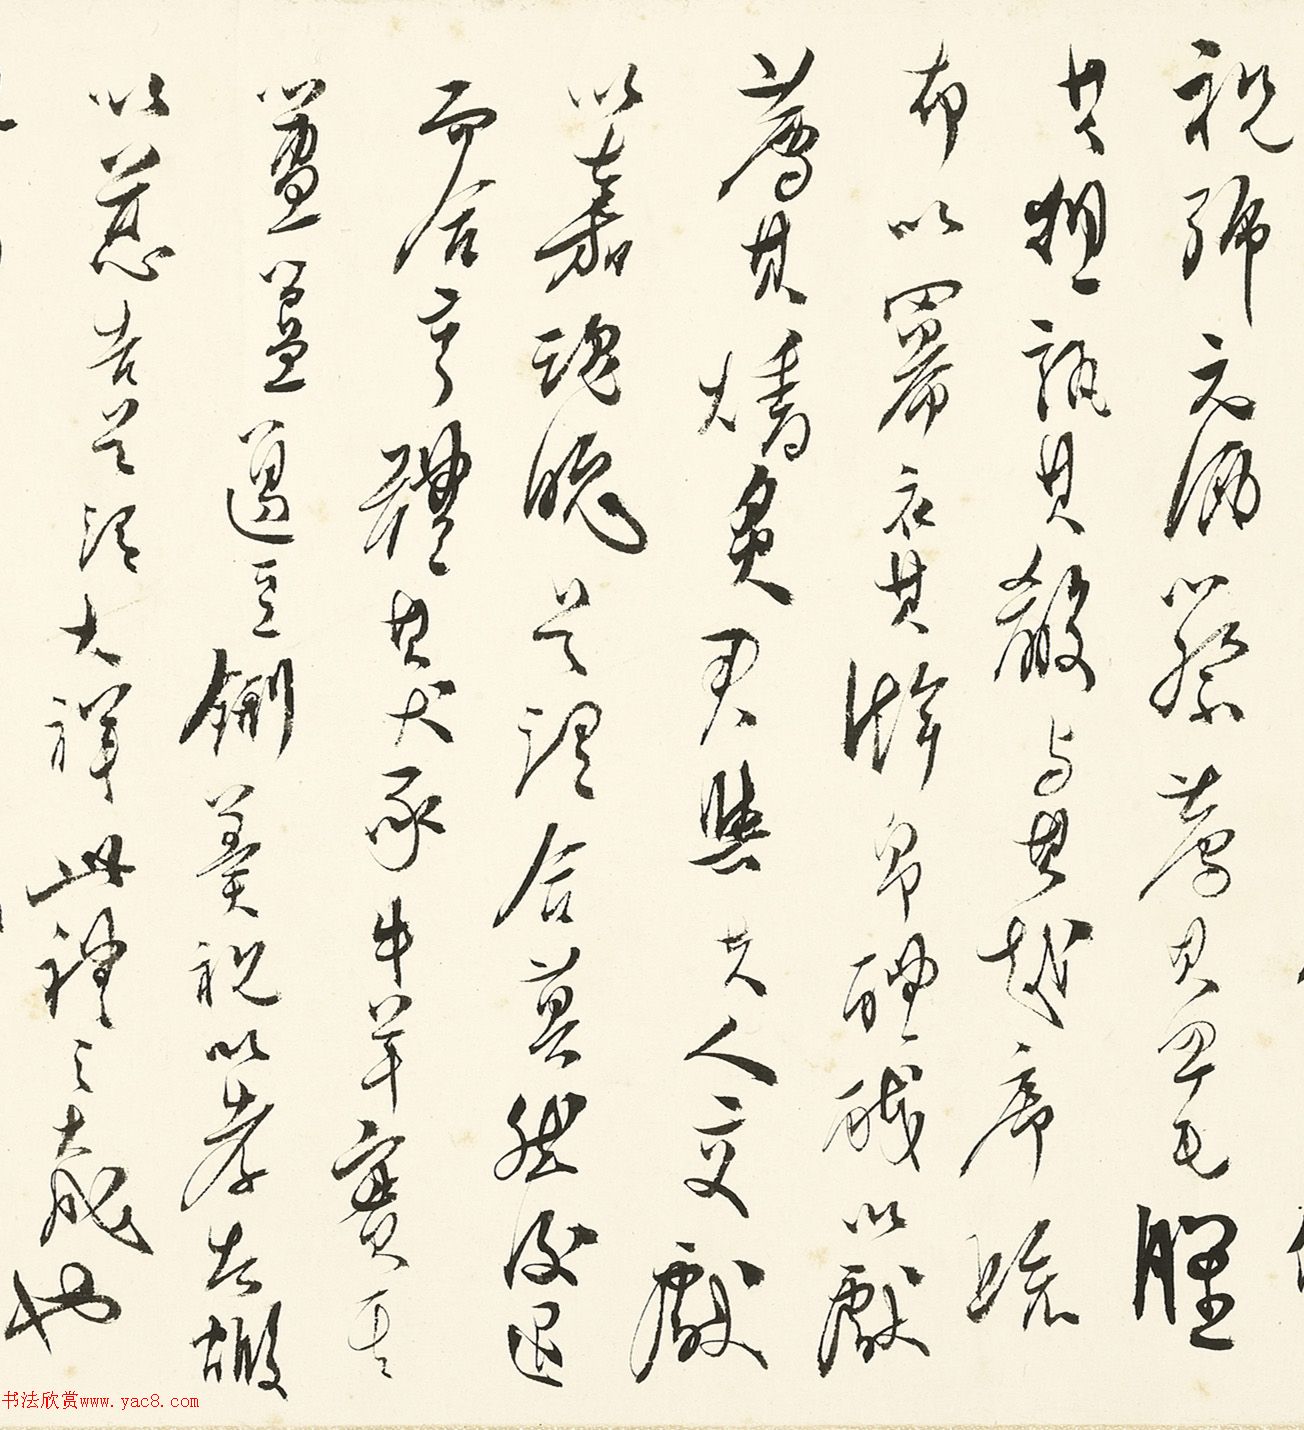 祝號玄酒以祭薦其血毛腥
其俎孰其殽与其越席疏
布以羃衣其澣帛醴醆以獻
薦其燔炙君與夫人交獻
以嘉魂魄是謂合莫然後退
而合亨體其犬豕牛羊實其
簠簋籩豆鉶羹祝以孝告嘏
以慈告是謂大祥此禮之大成也
书法欣赏www.yac8.com